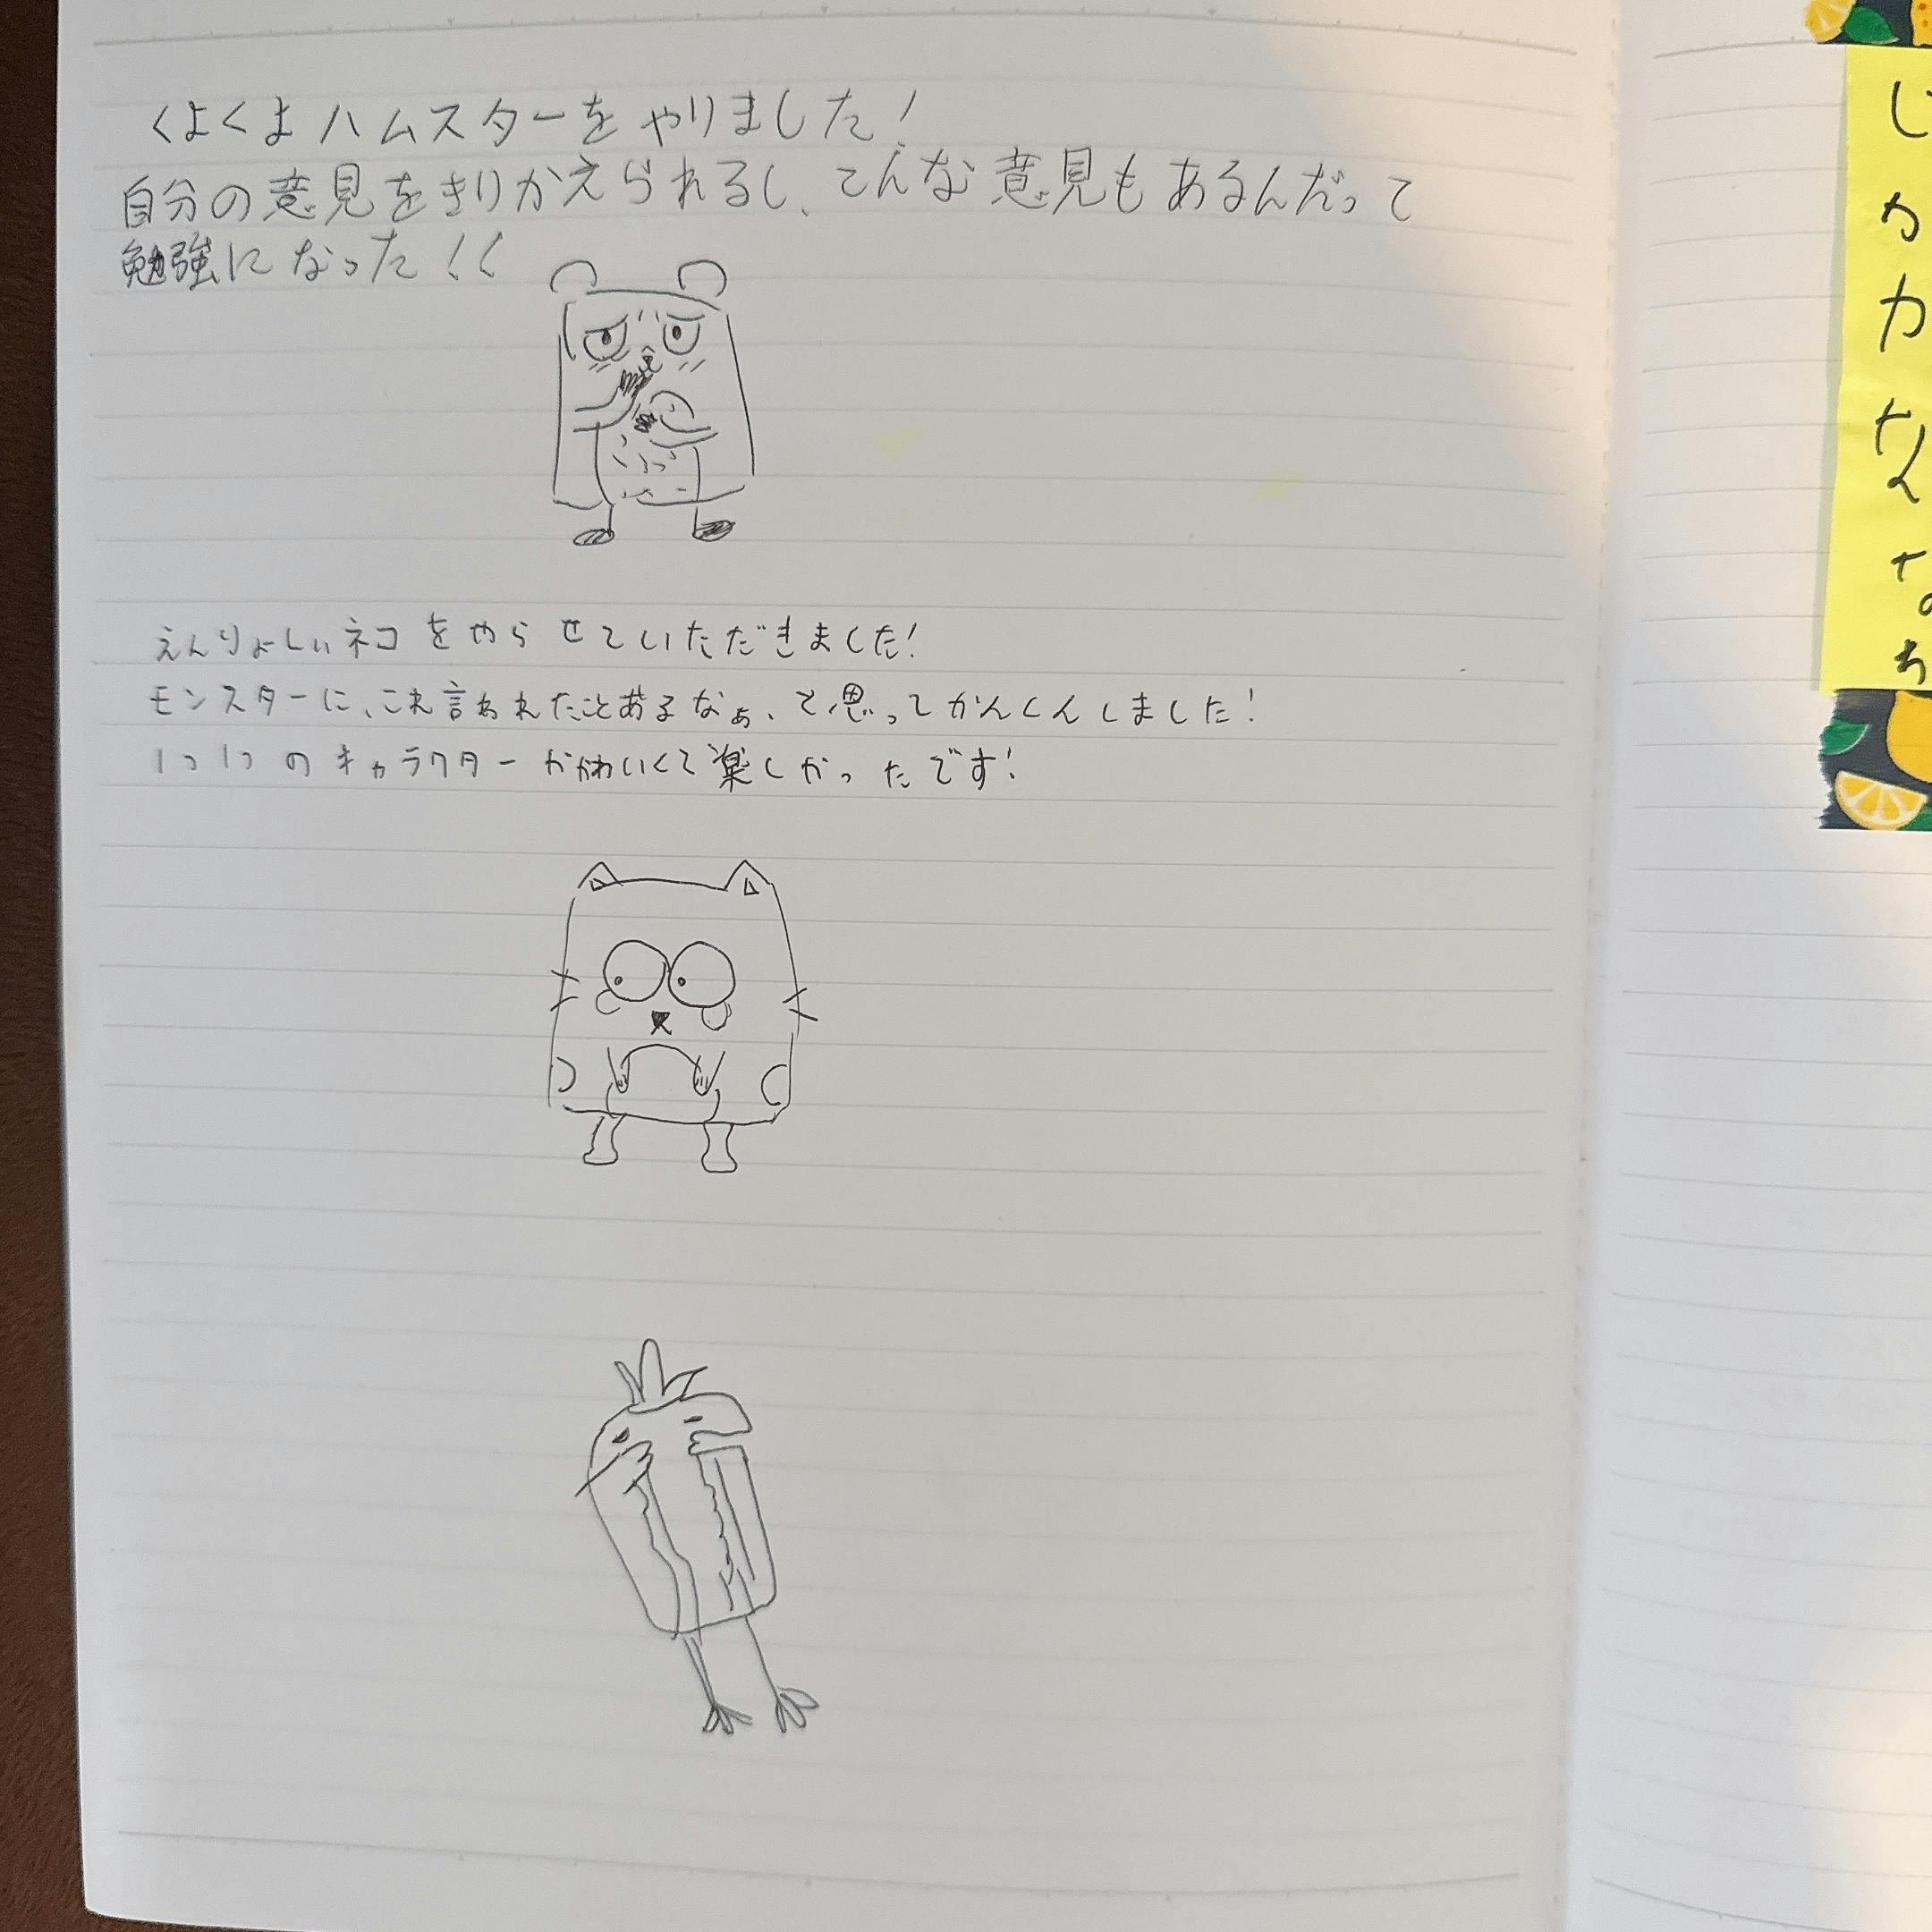 くよくよハムスターをやりました!
自分の意見をきりかえられるし、こんな意見もあるんだって
勉強になった!!
えんりょしぃネコをやらせていただきました!
モンスターに、これ言われたことあるなぁ、と思ってかんくんしました!
1つ1つのキャラクターがかわいくて楽しかったです!